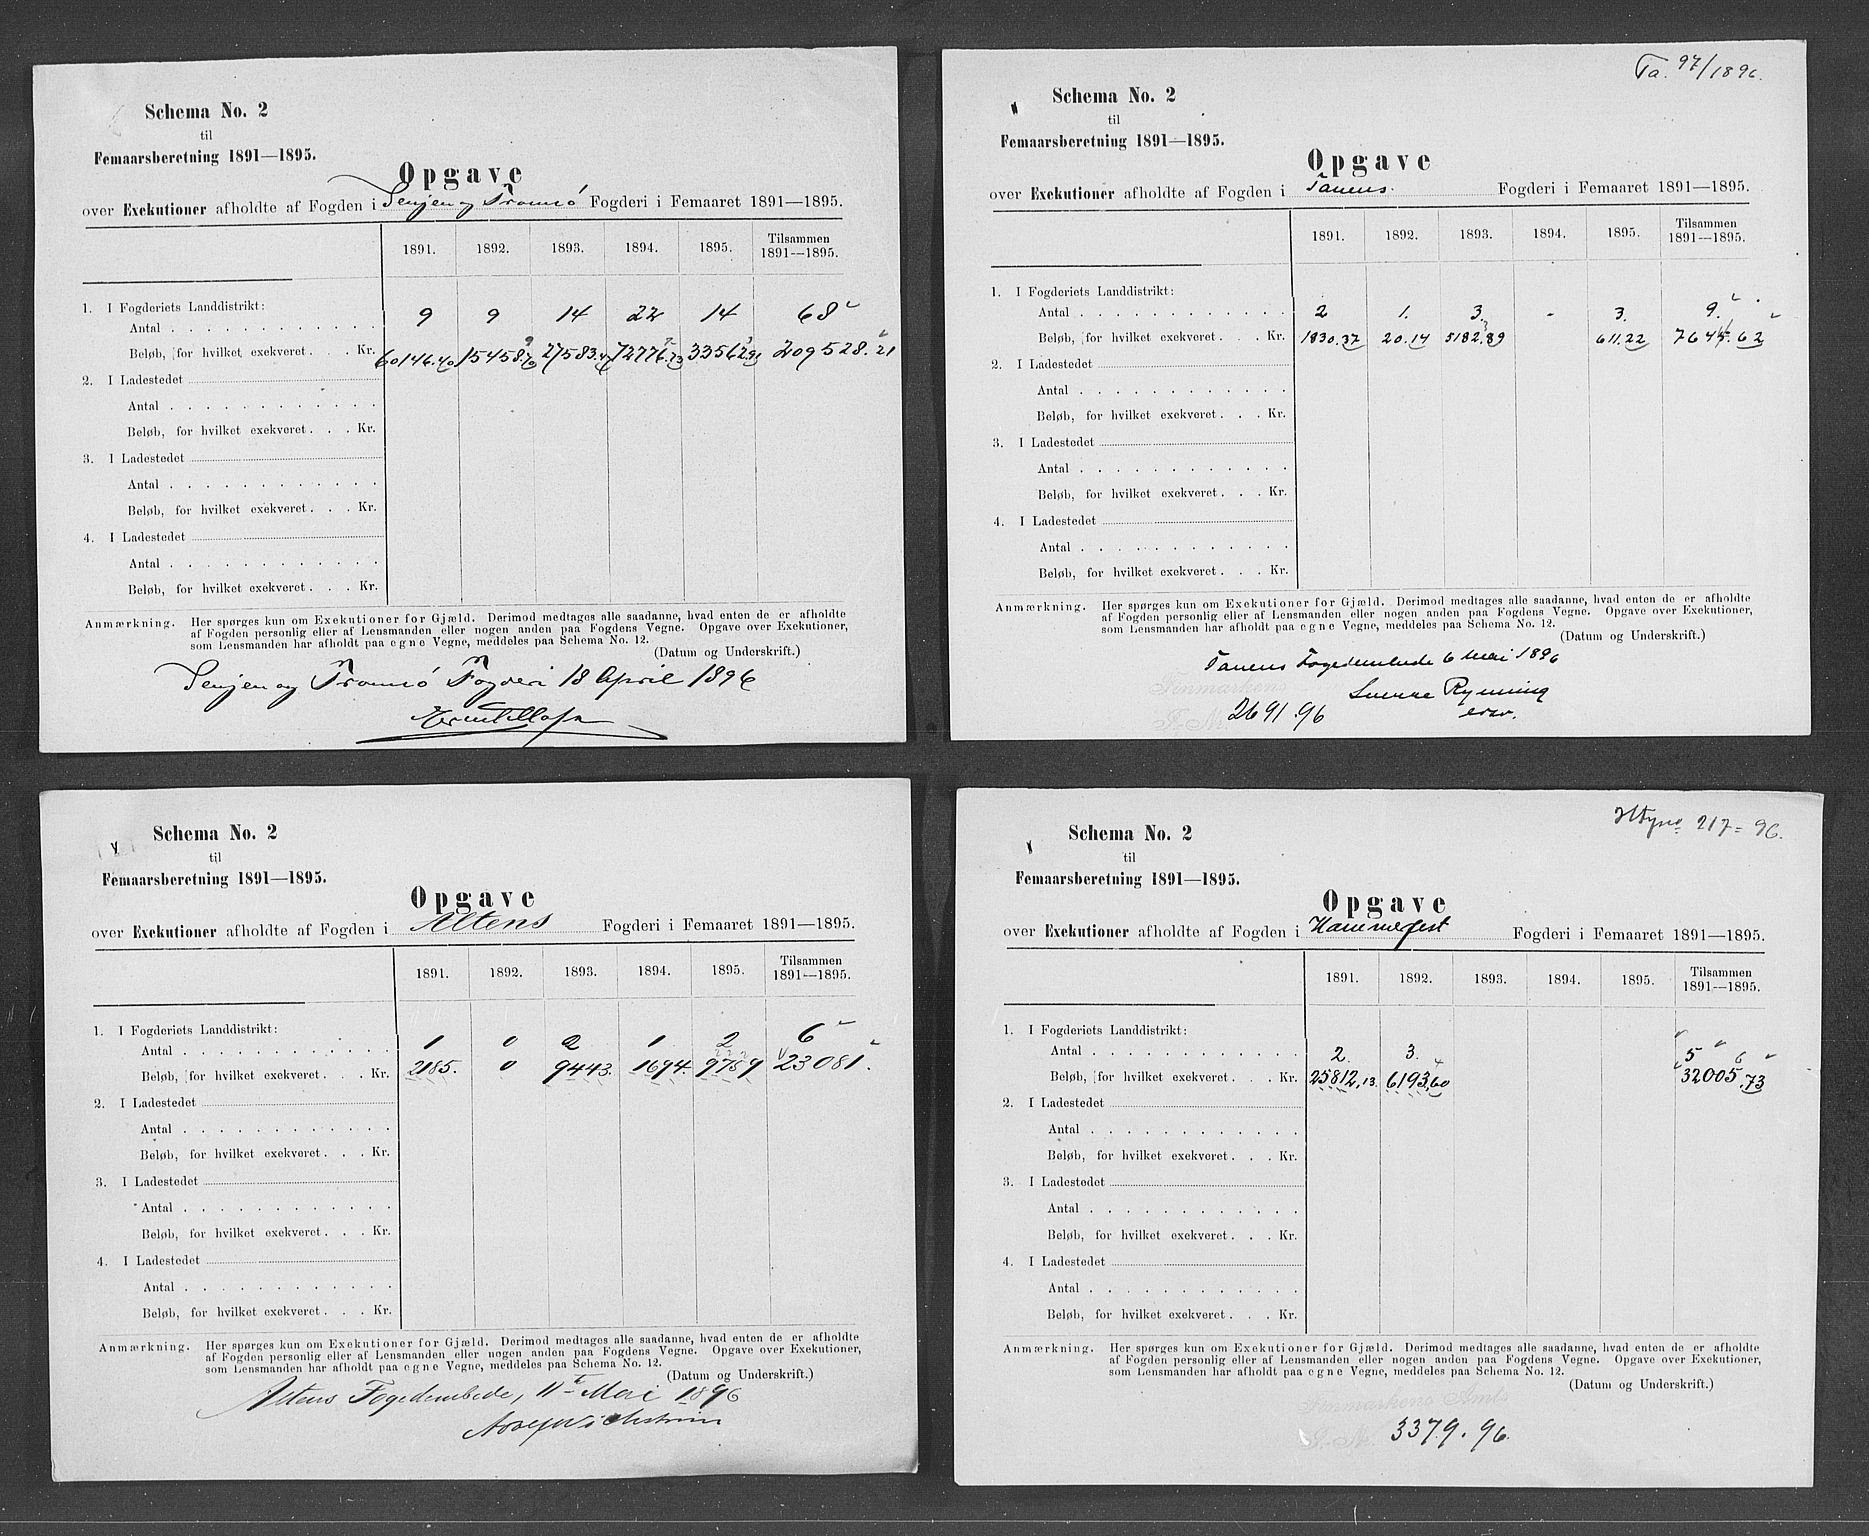 Schema No. 2
til
Femaarsberetning 1891—1895.
Opgave
over Exekutioner afholdte af Fogden i Senjen og Tromsö Fogderi i Femaaret 1891—1895.
1891. 1892. 1893. 1894. 1895. Tilsammen 1891—1895.
1. I Fogderiets Landdistrikt:
Antal 9 9 14 22 14 68
Beløb, for hvilket exekveret Kr. 60146.40 15458.70 27583.47 72776.73 33562.91 209528.21
2. I Ladestedet
Antal
Beløb, for hvilket exekveret Kr.
3. I Ladestedet
Antal
Beløb, for hvilket exekveret Kr.
4. I Ladestedet
Antal
Beløb, for hvilket exekveret Kr.
Anmærkning. Her spørges kun om Exekutioner for Gjæld. Derimod medtages alle saadanne, hvad enten de er afholdte
af Fogden personlig eller af Lensmanden eller nogen anden paa Fogdens Vegne. Opgave over Exekutioner,
som Lensmanden har afholdt paa egne Vegne, meddeles paa Schema No. 12.
(Datum og Underskrift.)
Senjen og Tromsö Fogderi 18 April 1896
Ta. 97/1896.
Schema No. 2
til
Femaarsberetning 1891—1895.
Opgave
over Exekutioner afholdte af Fogden i Tanens Fogderi i Femaaret 1891—1895.
1891. 1892. 1893. 1894. 1895. Tilsammen 1891—1895.
1. I Fogderiets Landdistrikt:
Antal 2 1. 3. - 3. 9.
Beløb, for hvilket exekveret Kr. 1830.37 20.14 5182.89 611.22 7644.62
2. I Ladestedet
Antal
Beløb, for hvilket exekveret Kr.
3. I Ladestedet
Antal
Beløb, for hvilket exekveret Kr.
4. I Ladestedet
Antal
Beløb, for hvilket exekveret Kr.
Anmærkning. Her spørges kun om Exekutioner for Gjæld. Derimod medtages alle saadanne, hvad enten de er afholdte
af Fogden personlig eller af Lensmanden eller nogen anden paa Fogdens Vegne. Opgave over Exekutioner,
som Lensmanden har afholdt paa egne Vegne, meddeles paa Schema No. 12.
(Datum og Underskrift.)
Tanens Fogedembede 6 Mai 1896
Finmarkens
Rynning
2691.96
Schema No. 2
til
Femaarsberetning 1891—1895.
Opgave
over Exekutioner afholdte af Fogden i Altens Fogderi i Femaaret 1891—1895.
1891. 1892. 1893. 1894. 1895. Tilsammen 1891—1895.
1. I Fogderiets Landdistrikt:
Antal 1 0 2 1 2 6
Beløb, for hvilket exekveret Kr. 2185. 0 9443. 1694. 9759 23081.
2. I Ladestedet
Antal
Beløb, for hvilket exekveret Kr.
3. I Ladestedet
Antal
Beløb, for hvilket exekveret Kr.
4. I Ladestedet
Antal
Beløb, for hvilket exekveret Kr.
Anmærkning. Her spørges kun om Exekutioner for Gjæld. Derimod medtages alle saadanne, hvad enten de er afholdte
af Fogden personlig eller af Lensmanden eller nogen anden paa Fogdens Vegne. Opgave over Exekutioner,
som Lensmanden har afholdt paa egne Vegne, meddeles paa Schema No. 12.
(Datum og Underskrift.)
Altens Fogedembede, 11te Mai 1896
217 = 96.
Schema No. 2
til
Femaarsberetning 1891—1895.
Opgave
over Exekutioner afholdte af Fogden i Hammerfest Fogderi i Femaaret 1891—1895.
1891. 1892. 1893. 1894. 1895. Tilsammen 1891—1895.
1. I Fogderiets Landdistrikt:
Antal 2. 3. 5
Beløb, for hvilket exekveret Kr. 25812,13. 6193,60 32005,73
2. I Ladestedet
Antal
Beløb, for hvilket exekveret Kr.
3. I Ladestedet
Antal
Beløb, for hvilket exekveret Kr.
4. I Ladestedet
Antal
Beløb, for hvilket exekveret Kr.
Anmærkning. Her spørges kun om Exekutioner for Gjæld. Derimod medtages alle saadanne, hvad enten de er afholdte
af Fogden personlig eller af Lensmanden eller nogen anden paa Fogdens Vegne. Opgave over Exekutioner,
som Lensmanden har afholdt paa egne Vegne, meddeles paa Schema No. 12.
(Datum og Underskrift.)
Finmarkens Amt
3379.96